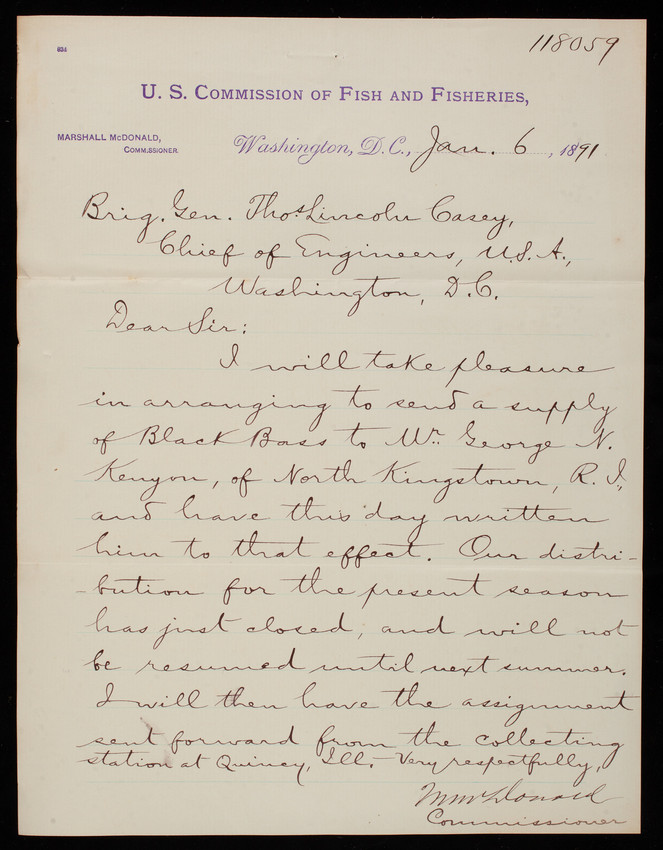 118059
U. S. COMMISSION OF FISH AND FISHERIES,
MARSHALL McDONALD,
COMMISSIONER.
Washington, D.C., Jan. 6, 1891
Brig. Gen. Thos. Lincoln Casey,
Chief of Engineers, U.S.A.,
Washington, D.C.
Dear Sir:
I will take pleasure
in arranging to send a supply
of Black Bass to Mr. George N.
Kenyon, of North Kingstown, R. I.,
and have this day written
him to that effect. Our distri-
-bution for the present season
has just closed, and will not
be resumed until next summer.
I will then have the assignment
sent forward from the collecting
station at Quincy, Ill. Very respectfully,
M McDonald
Commissioner